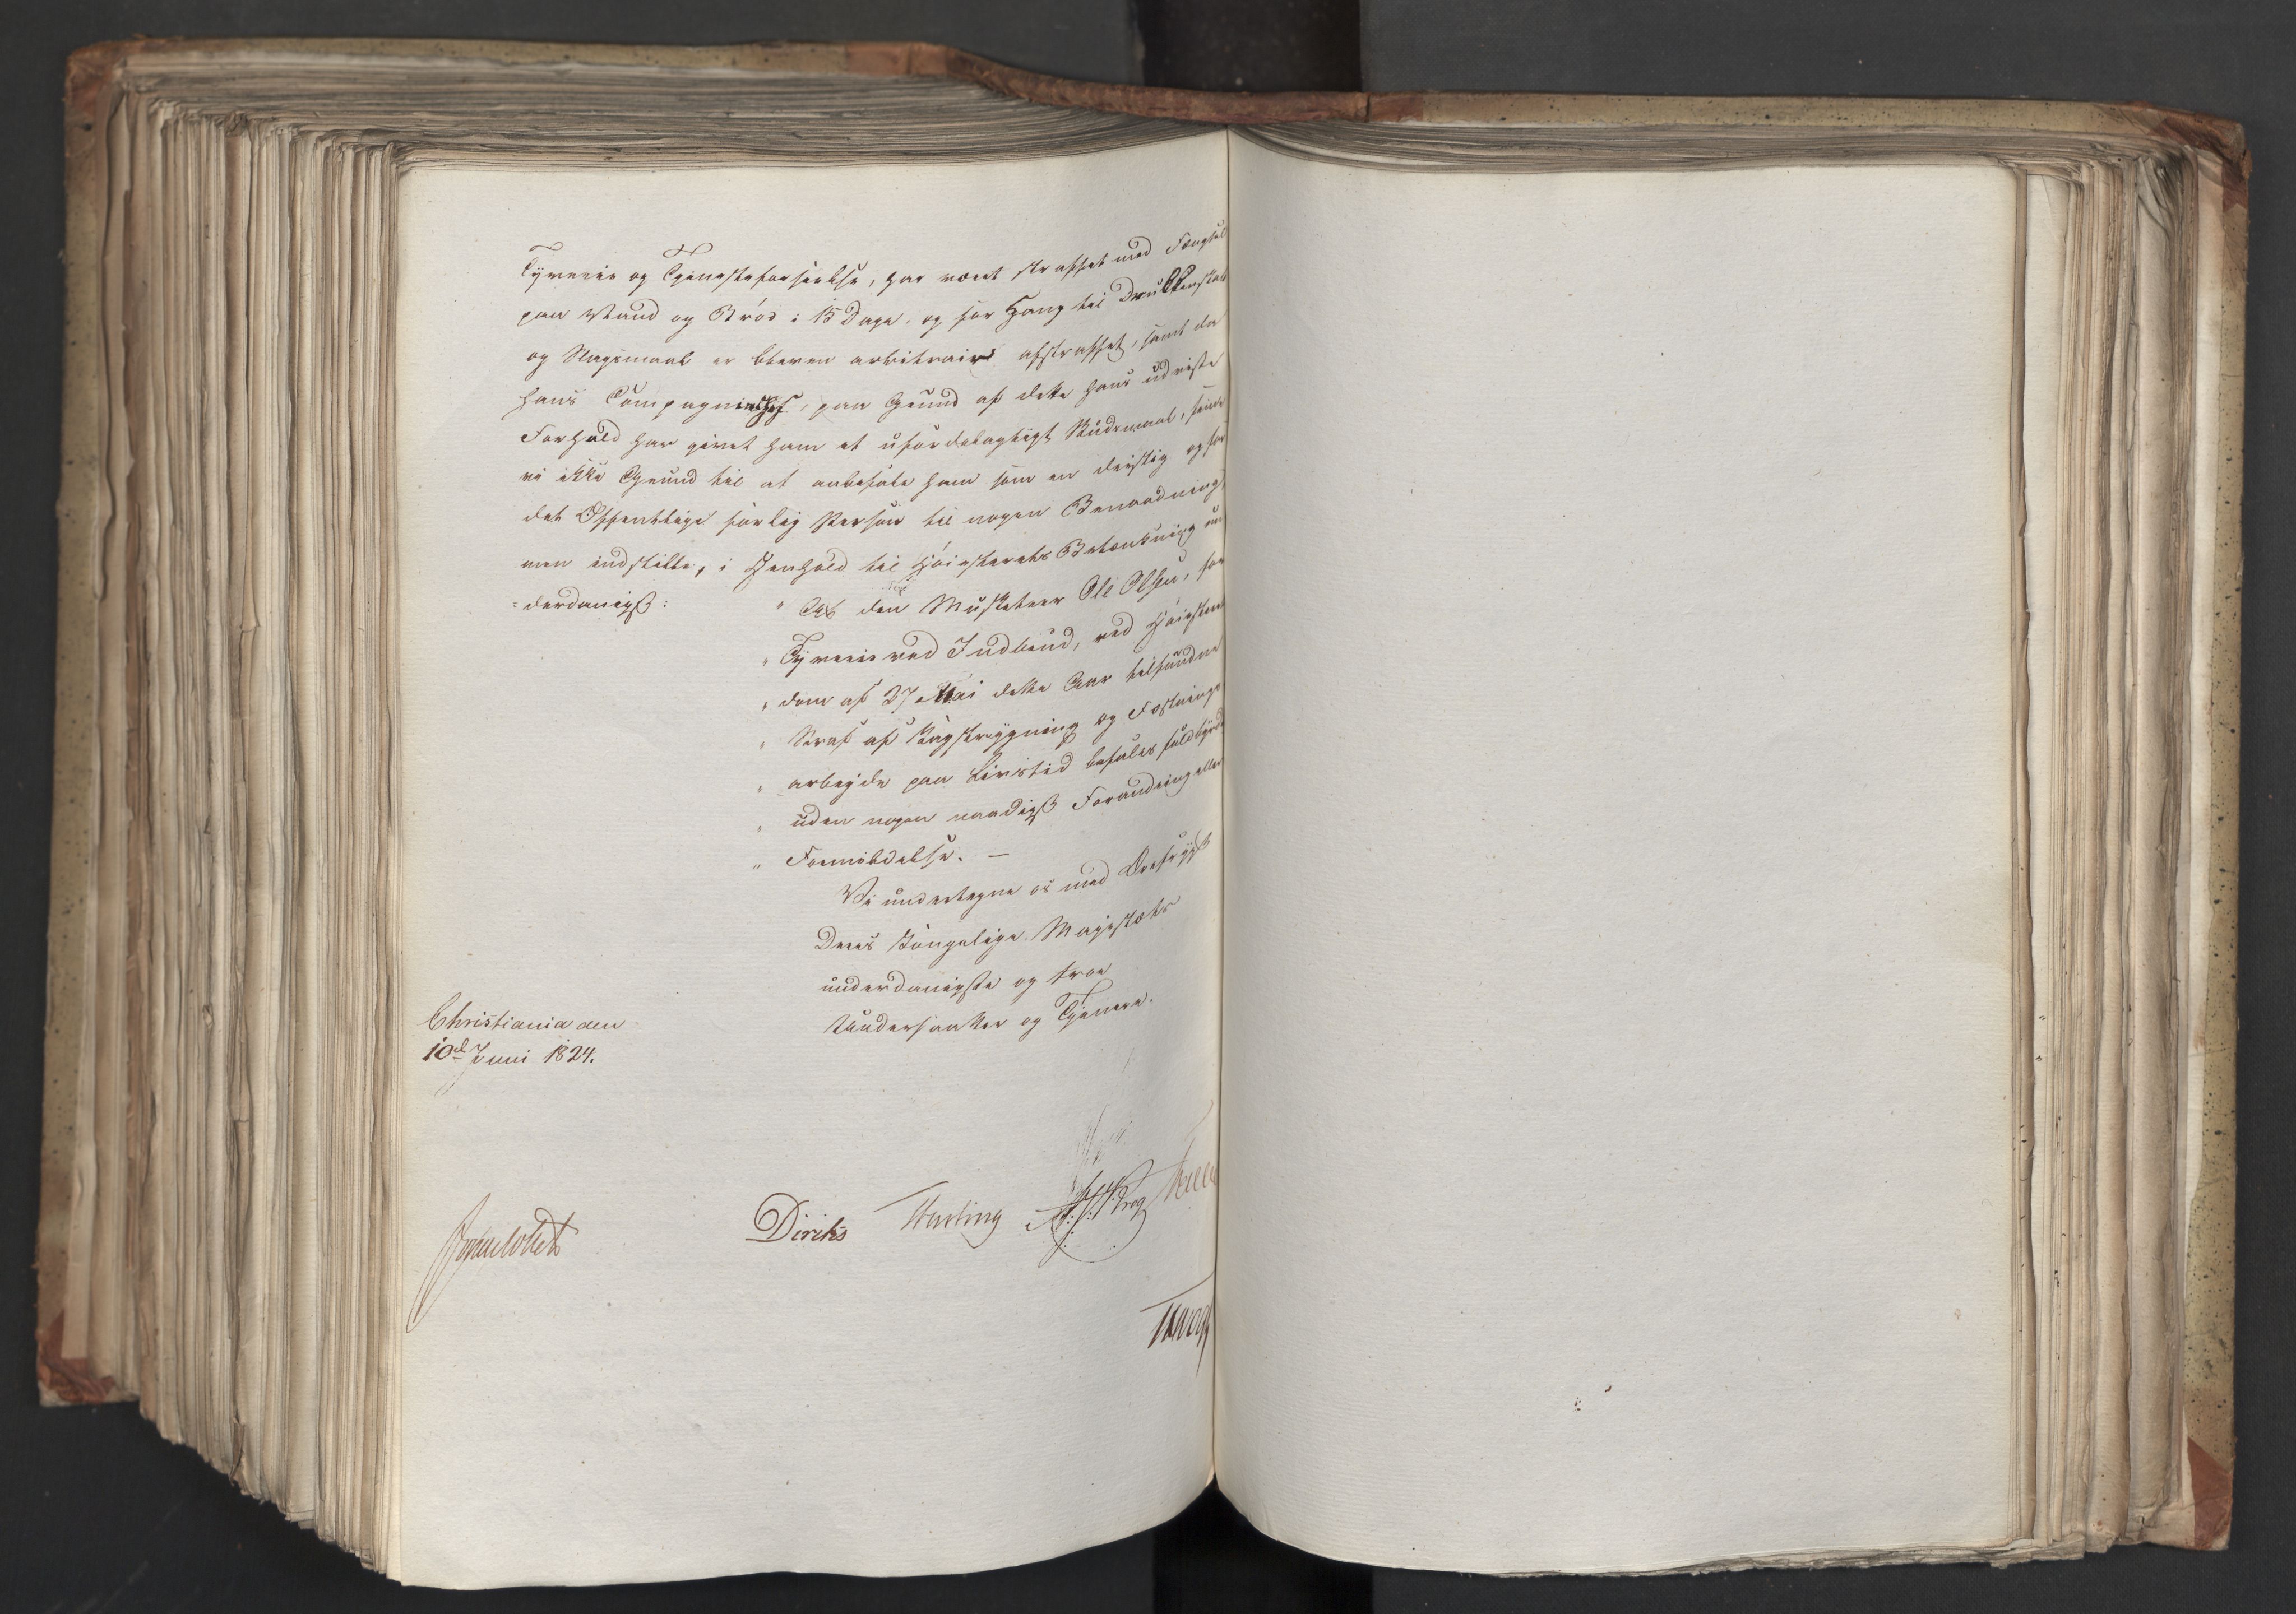 Tyverie og Tjenesteforseelse, har været straffet med Fængsel
paa Vand og Brød i 15 Dage, og for Hang til Drukkenskab
og Slagsmaal er bleven arbitrair afstraffet, samt da
hans Compagniechef, paa Grund af dette hans udviste
Forhold har givet ham et ufordelagtigt Skudsmaal, finde
vi ikke Grund til at anbefale ham som en dristig og for
det Offentlige farlig Person til nogen Benaadning,
men indstille, i Henhold til Høiesterets Betænkning un
=derdanigst:
" At den Musketeer Ole Olsen, for
" Tyverie ved Indbrud, ved Høiesterets
" dom af 27 Mai dette Aar tilfundne
" Straf af Kagstrygning og Fæstnings
" arbeyde paa Livstid befales fuldbyrdet
" uden nogen naadigst Forandring eller
" Formildelse. —
Vi undertegne os med Ærefrygt
Deres Kongelige Majestæts
underdanigste og troe
Undersaatter og Tjenere.
Christiania den
10d Juni 1824.
Diriks